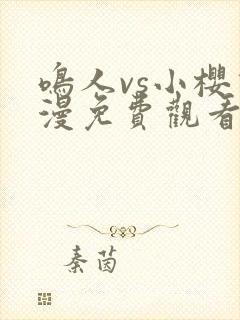 鳴人vs小櫻
漫免費觀看
秦茵